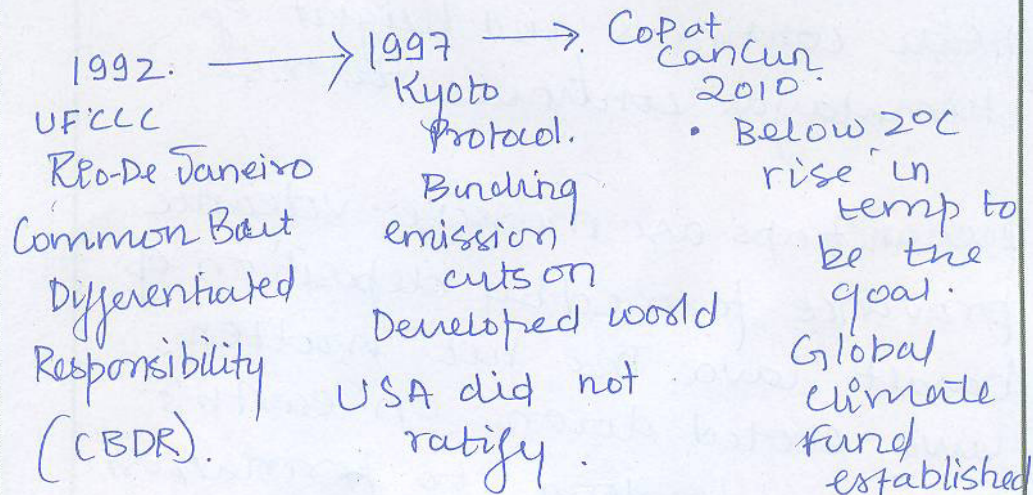 1992.
UFCCC
Rio-De Janeiro
Common But
Differentiated
Responsibility
(CBDR).
→ 1997
Kyoto
Protocol.
Binding
emission
cuts on
Developed world
USA did not
ratify.
→ CoP at
Cancun
2010
• Below 2°C
rise in
temp to
be the
goal.
Global
climate
Fund
established